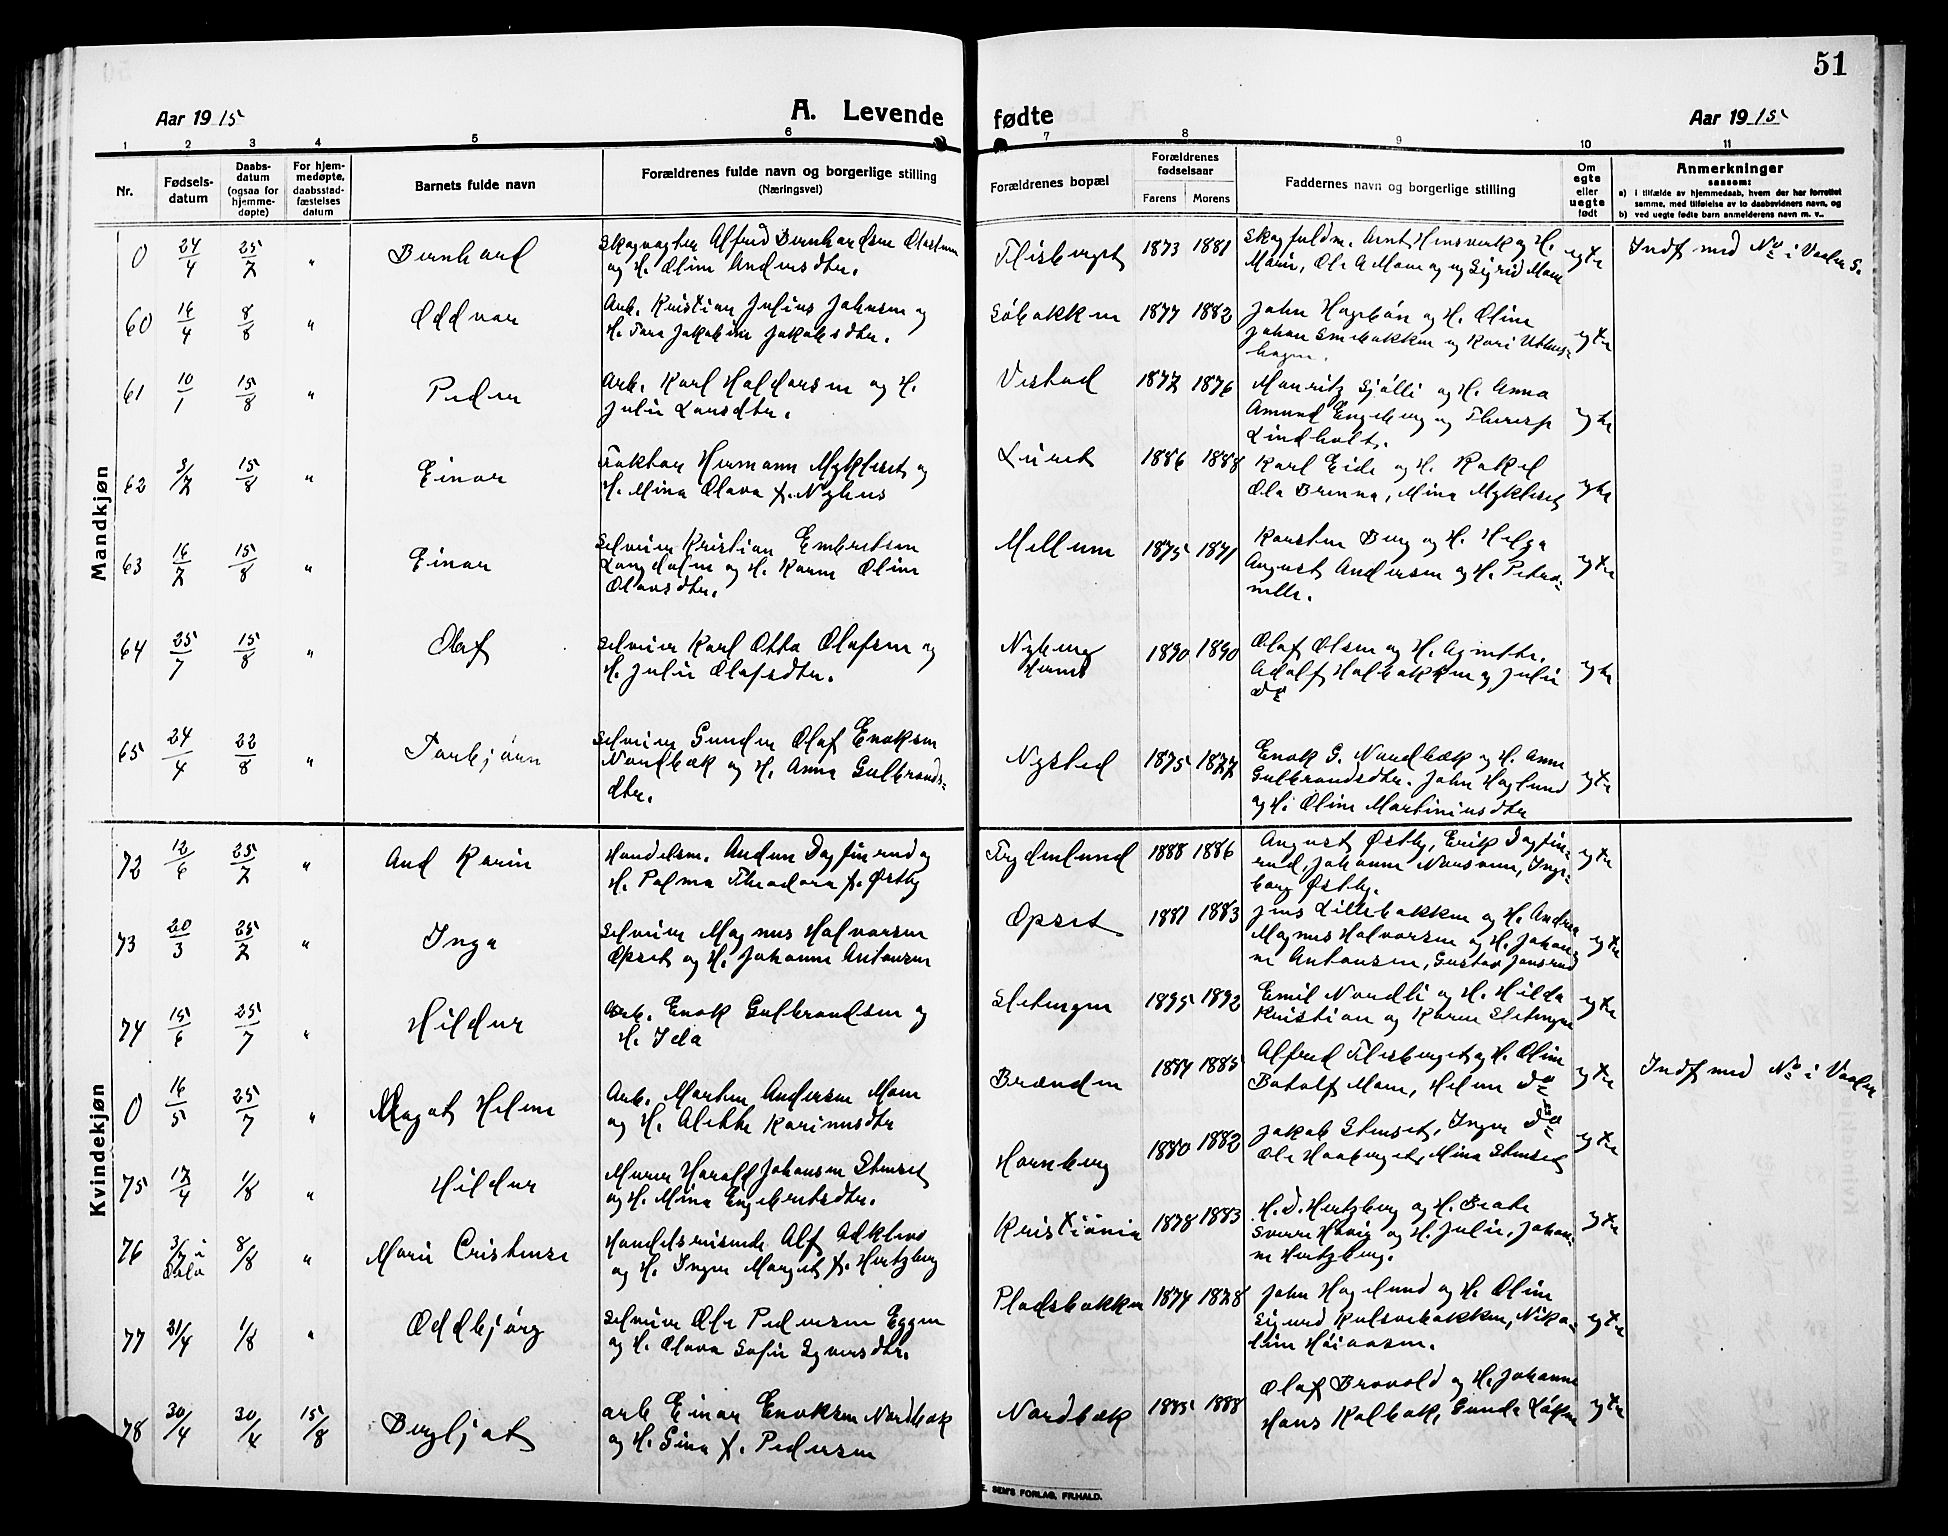 51
Aar 1915 A. Levende fødte Aar 1915
1 2 3 4 5 6 7 8 9 10 11
Nr.
Fødsels-
datum
Daabs-
datum
(ogsaa for
hjemme-
døpte)
For hjem-
medøpte,
daabsstad-
fæstelses
datum
Barnets fulde navn
Forældrenes fulde navn og borgerlige stilling
(Næringsvei)
Forældrenes bopæl
Forældrenes
fødselsaar
Farens Morens
Faddernes navn og borgerlige stilling
Om
egte
eller
uegte
født
Anmerkninger
saasom:
a) i tilfælde av hjemmedaab, hvem der har forrettet
samme, med tilføielse av to daabsvidners navn, og
b) ved uegte fødte barn anmelderens navn m. v..
Mandkjøn
0 24/4 25/7 " Bernhard
Skogvogter Alfred Bernhardsen
og H. Oline Andersdtr.
Flisberget 1873 1881
Skogfuldm. Arnt og H.
Marie, Ole A Moen og Sigrid Moen
egte
Indf med No i Vaaler S.
60 16/4 8/8 " Oddvar
Arb. Kristian Julius Johnsen og
H. Tora Jakobine Jakobsdtr.
Søbakken 1877 1882
John Hagebøn og H. Oline
Johan Smebakken og Kari Uthus-
hagen.
egte
61 10/1 15/8 " Peder
Arb. Karl Haldorsen og H.
Julie Larsdtr.
Vestad 1872 1876
Mauritz Sjølli og H. Anna
Amund Engeberg og Therese
Lindholt.
egte
62 3/7 15/8 " Einar
Faktor Hermann Mykleset og
H. Mina Olava f. Nyhus
Luret 1886 1888
Karl Eide og H. Rakel
Ola Brenna, Mina Mykleset
egte
63 16/7 15/8 " Einar
Selveier Kristian Embretsen
Langdalen og H. Karen Oline
Olavsdtr.
Mellem 1875 1871
Karsten Berg og H. Helga
August Andersen og H. Petro-
nelle.
egte
64 25/7 15/8 " Olaf
Selveier Karl Otto Olafsen og
H. Julie Olafsdtr.
Nyberg
1890 1890
Olaf Olsen og H. Agnethe.
Adolf Halbakken og Julie
Do
egte
65 24/4 22/8 " Torbjørn
Selveier Gunder Olaf Enoksen
Nordbæk og H. Anna Gulbrands-
dtr.
Nysted 1875 1877
Enok G. Nordbæk og H. Anne
Gulbrandsdtr. John Haglund
og H. Oline Martiniusdtr
egte
Kvindekjøn
72 12/6 25/7 " Aud Karin
Handelsm. Anden Dagfinrud og
H. Palma Theodora f. Østby
Frydenlund 1888 1886
August Østby, Erik Dagfin-
rud, Johanne Narvesen, Inge-
borg Østby.
egte
73 20/3 25/7 " Inga
Selveier Magnus Halvorsen
Opset og H. Johanne Antonsen
Opset 1881 1883
Jens Lillebakken og H. Andrea
Magnus Halvorsen og H. Johan-
ne Antonsen, Gustav Jonsrud
egte
74 15/6 25/7 " Hildur
Arb. Enok Gulbrandsen og
H. Ida
Sletengen 1895 1892
Emil Nordli og H. Hilda
Kristian og Karen Sletengen
egte
0 16/5 25/7 " Magot Helene
Arb. Morten Andersen Moen
og H. Alette Karinusdtr
Brænden 1884 1885
Alfred Flisberget og H. Oline
Botolf Moen, Helene Do
egte
Indf med No i Vaaler
75 17/4 1/8 " Hildur
Murer Harald Johansen Stenset
og H. Mina Engebretsdtr.
Hornberg 1880 1882
Jakob Stenset, Inger Do
Ole Haaberget, Mina Stenset
egte
76 3/7 i Oslo 8/8 " Marie Cristense
Handelsreisende Alf
og H. Inger Margit f. Hertzberg
Kristiania 1878 1883
H. D. Hertzberg og H. Beate
Sverre Høvig og H. Julie, Johan-
ne Hertzberg.
egte
77 21/4 1/8 " Oddbjørg
Selveier Ole Pedersen Eggen
og H. Olava Sofie Syversdtr.
Pladsbakken 1874 1878
John Hagelund og H. Oline
Sigurd Kulsvebakken, Niko-
line Høiaasen.
egte
78 30/4 30/4 15/8 Bergljot
Arb Einar Enoksen Nordbæk
og H. Gina f. Pedersen
Nordbæk 1885 1888
Olaf Bravold og H. Johanne
Hans Kalbæk, Gunda Løken
egte
E. SEM'S FORLAG, FR.HALD.